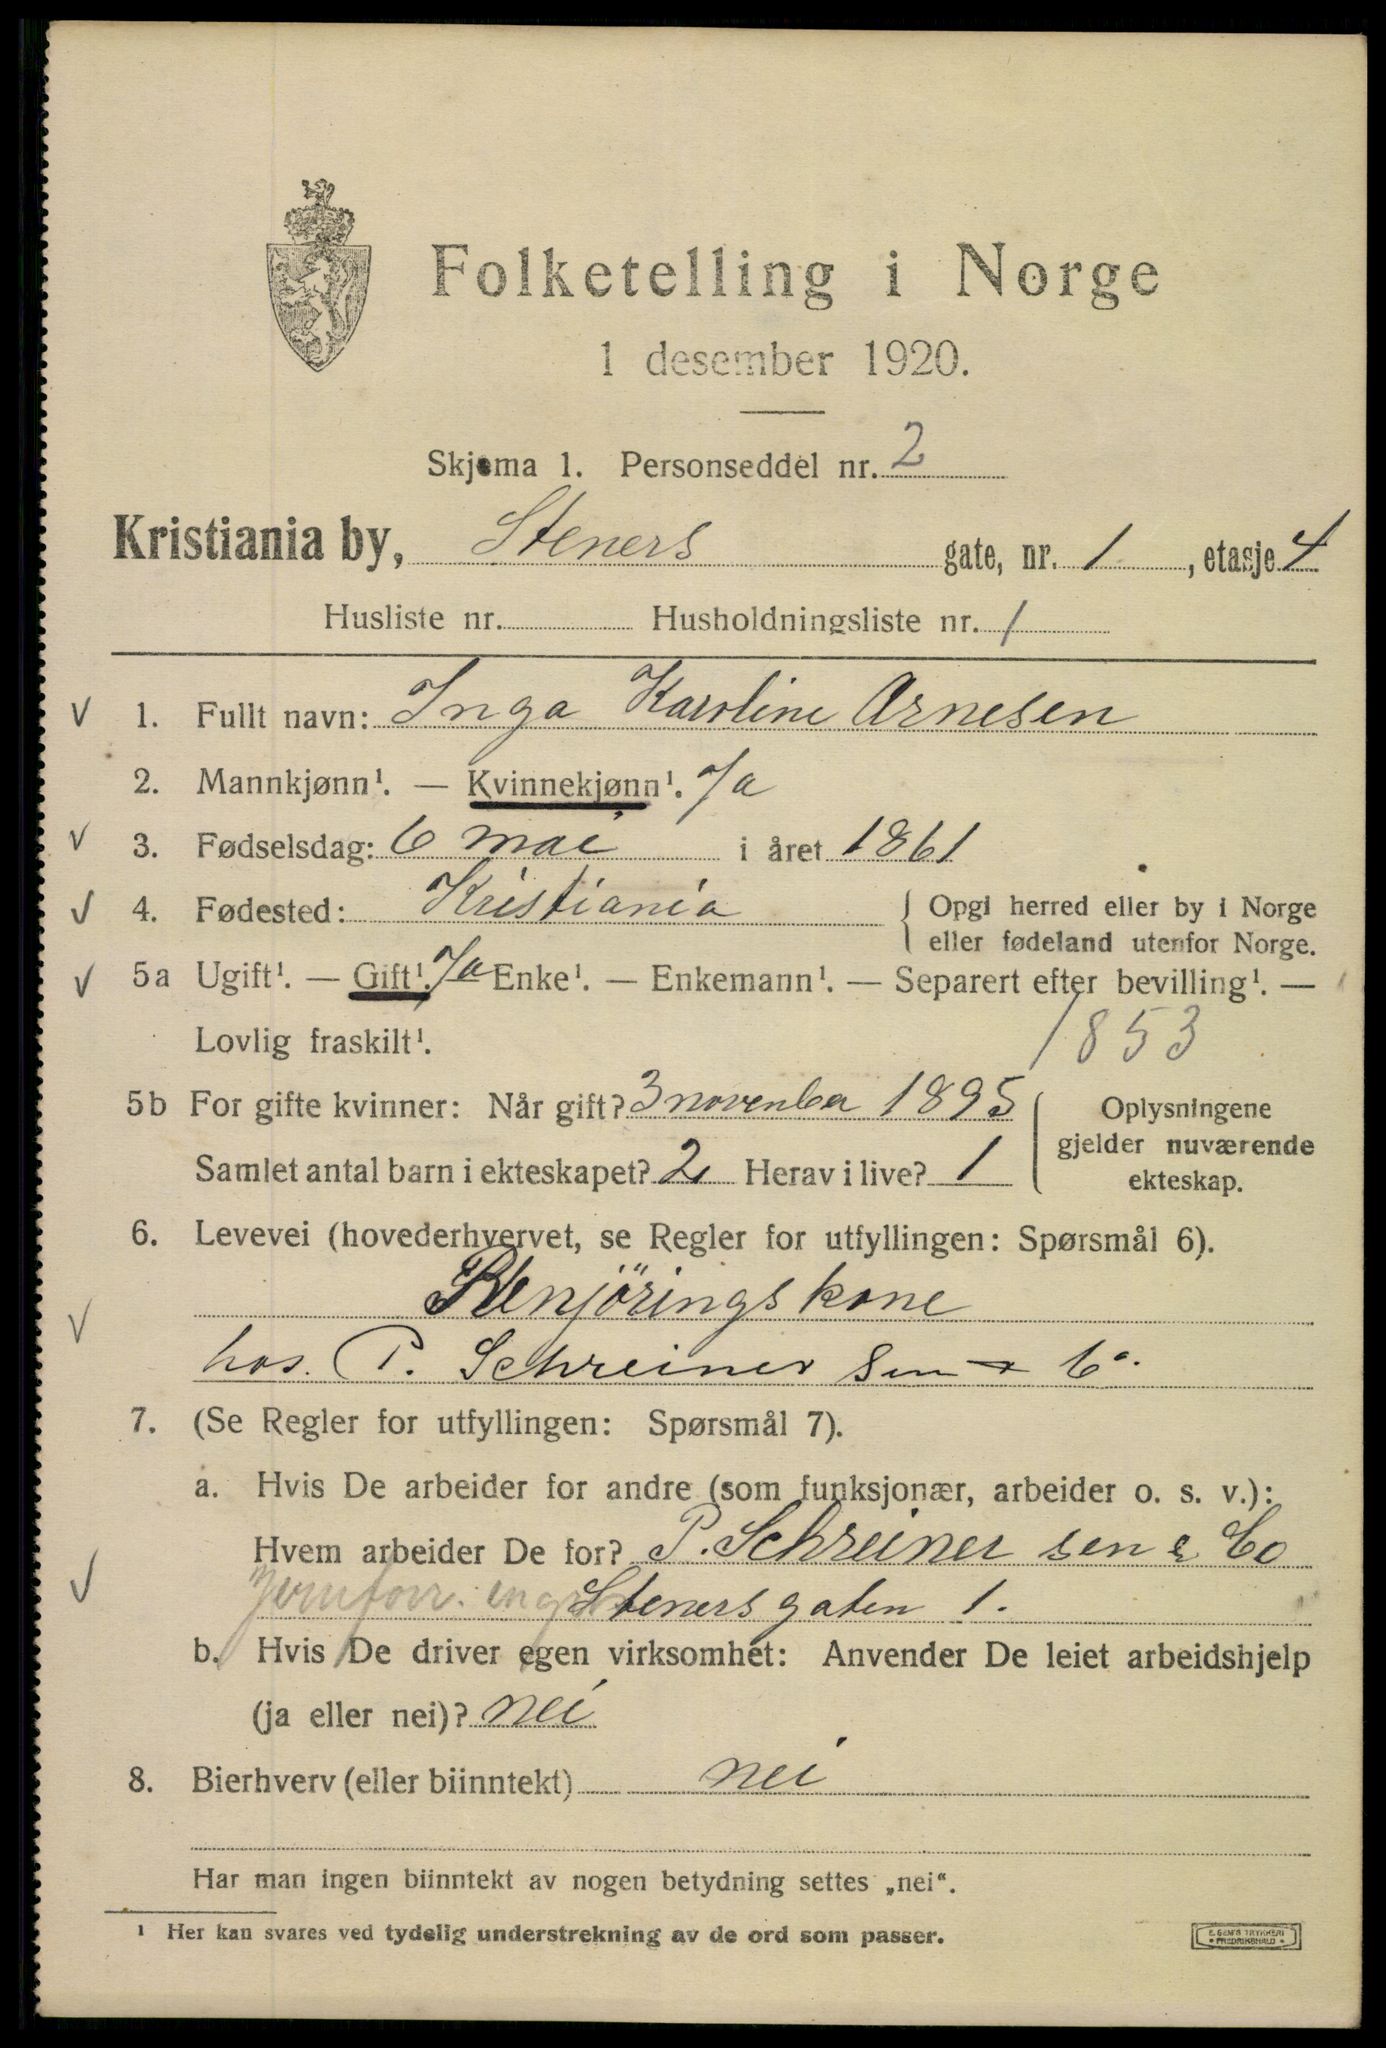 Folketelling i Norge
1 desember 1920.
Skjema 1. Personseddel nr. 2
Kristiania by, Steners gate, nr. 1, etasje 4
Husliste nr. Husholdningsliste nr. 1
1. Fullt navn: Inga Karoline Arnesen
2. Mannkjønn¹. — Kvinnekjønn¹. Ja
3. Fødselsdag: 6 mai i året 1861
4. Fødested: Kristiania { Opgi herred eller by i Norge
eller fødeland utenfor Norge.
5a Ugift¹. — Gift¹. Ja — Enke¹. — Enkemann¹. — Separert efter bevilling¹. —
Lovlig fraskilt¹. 1853
5b For gifte kvinner: Når gift? 3 november 1895 { Oplysningene
gjelder nuværende
Samlet antal barn i ekteskapet? 2 Herav i live? 1 ekteskap.
6. Levevei (hovederhvervet, se Regler for utfyllingen: Spørsmål 6).
Renjöringskone
hos. P. Schreiner sen + Co.
7. (Se Regler for utfyllingen: Spørsmål 7).
a. Hvis De arbeider for andre (som funksjonær, arbeider o. s. v.):
Hvem arbeider De for? P. Schreiner sen & Co
Jernforr. engros Stenersgaten 1.
b. Hvis De driver egen virksomhet: Anvender De leiet arbeidshjelp
(ja eller nei)? nei
8. Bierhverv (eller biinntekt) nei
Har man ingen biinntekt av nogen betydning settes „nei“.
¹ Her kan svares ved tydelig understrekning av de ord som passer.
E. SEM'S TRYKKERI
• FREDRIKSHALD •